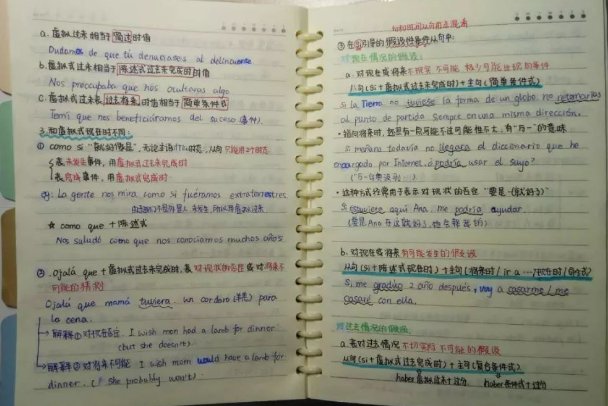 a. 虚拟过去相当于简过时值
Dudamos de que tú denunciases al delincuente
b. 虚拟式过去相当于陈述式过去未完成时时值
Nos preocupaba que nos ocultaras algo
c. 虚拟式过去表过去将来时值相当于简单条件式
Temí que nos beneficiáramos del suceso (事件).
3. 和虚拟式现在时不同:
① como si "就好像是",无论主句什么时态,从句只能用2个时态
表未发生事件,用虚拟式过去未完成时
表完成事件,用虚拟式过去完成时
eg: La gente nos mira como si fuéramos extraterrestres
☆ como que + 陈述式
Nos saludó como que nos conocíamos muchos años
② Ojalá que + 虚拟式过去未完成时,表对现状的否含或对将来不
可能的猜测
Ojalá que mamá tuviera un cordero (羊羔) para
la cena.
→ 解释① 对现状否含 I wish mom had a lamb for dinner
(but she doesn't).
→ 解释② 对将来不可能 I wish mom would have a lamb for
dinner. (she probably won't)
③ 在si引导的假设条件从句中:
对现在情况的假设:
a. 对现在或将来不现实 不可能 极少可能出现的条件
从句 (si + 虚拟式过去未完成时) + 主句 (简单条件式)
Si la Tierra no tuviese la forma de un globo no retornarías
al punto de partida siempre en una misma dirección.
• 指向将来时,
si mañana todavía no llegara el diccionario que he
encargado por Internet ¿podría usar el suyo?
• 这种方式经常用于表示对现状的否含 "要是…(就好了)"
Si estuviese aquí Ana, me podría ayudar.
(要是Ana在这就好了,她会帮我的)
b. 对现在或将来有可能发生的假设
从句 (si + 陈述式现在时) + 主句 (将来时 / ir a … 现在时 / 命令式)
Si me gradúo 2 año después, voy a casarme / me
casaré con ella.
对过去情况的假设
a. 表对过去情况不切实际 不可能的假设
从句 (si + 虚拟式过去完成时) + 主句 (复合条件式)
haber虚拟过去+过分. haber条件式+过分